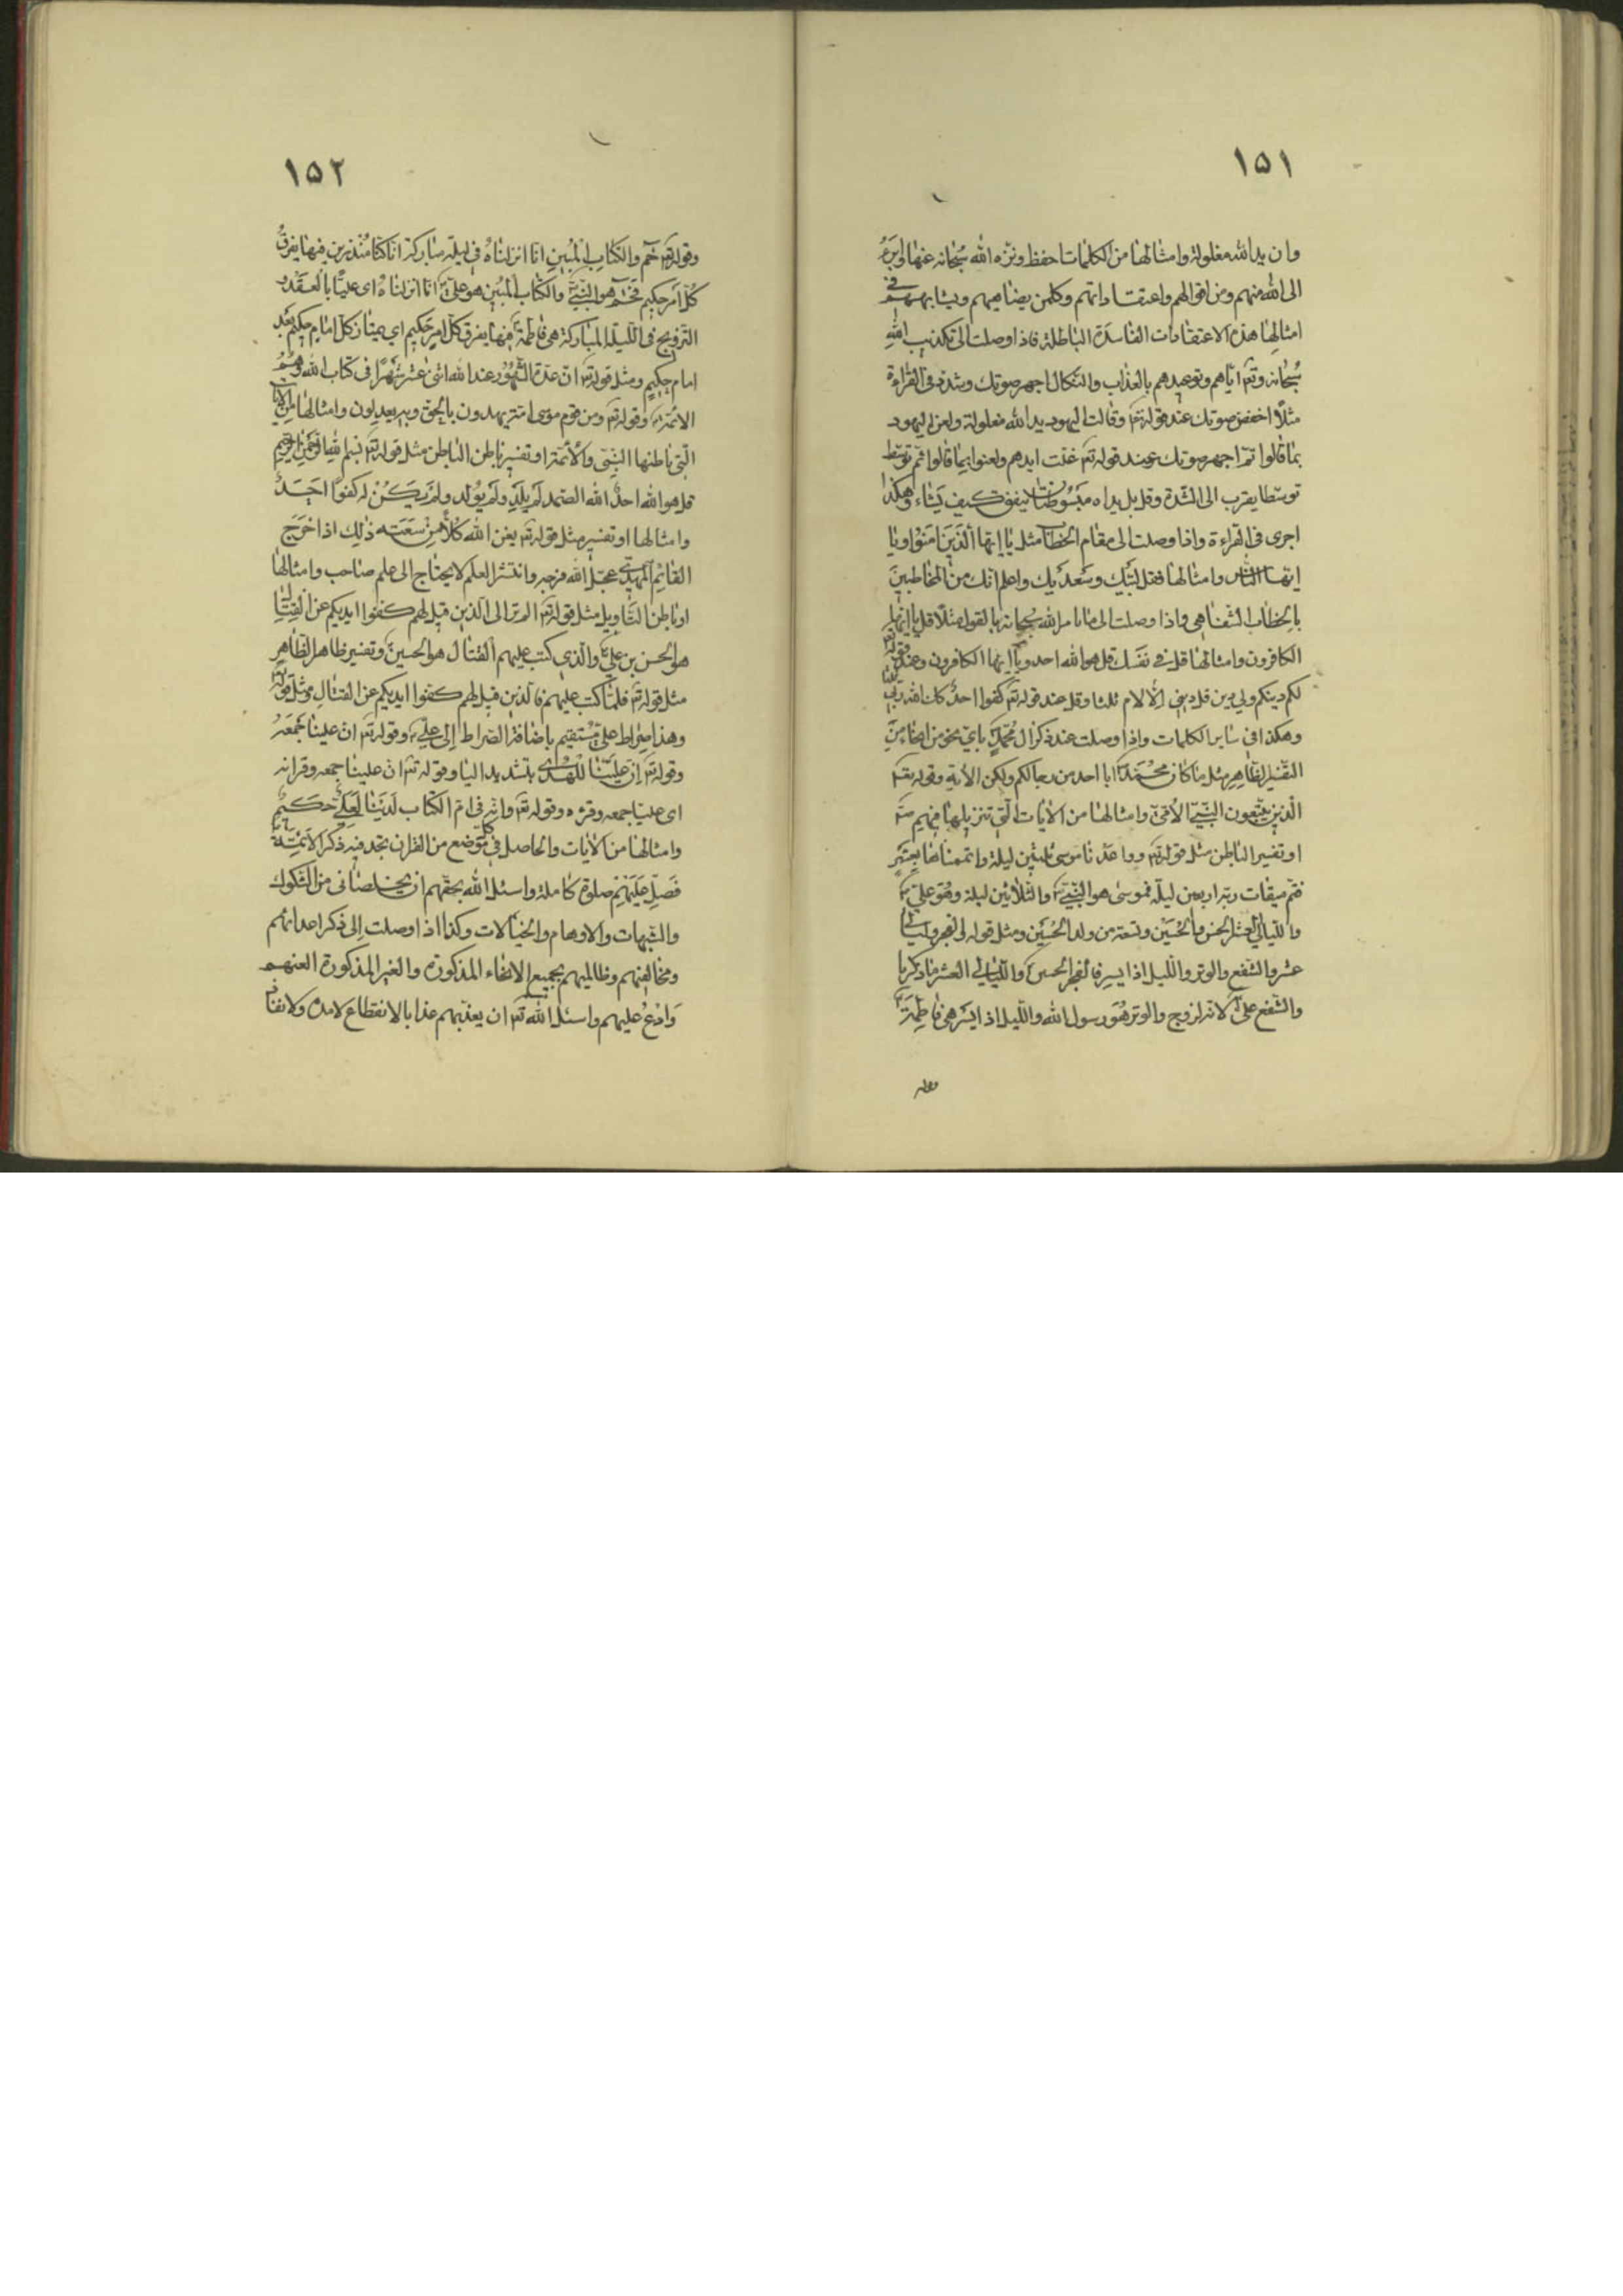 ١۵١
وان يد الله مغلولة وامثالها من الكلمات احفظ ونزه الله سبحانه عنها وابرء
الى الله منهم ومن اقوالهم واعتقاداتهم وكلمن يضاهيهم ويشابههم في
امثالها هذه الاعتقادات الفاسدة الباطلة فاذا وصلت الى تكذيب الله
سبحانه وتع اياهم وتوعيدهم بالعذاب والنكال اجهر صوتك وشدته في القراءة
مثلا اخفض صوتك عند قوله تع وقالت اليهود يد الله مغلولة ولعن اليهود
بما قالوا ثم اجهر صوتك عند قوله تع غلت ايدهم ولعنوا بما قالوا ثم توسط
توسطا يقرب الى الشدة وقل بل يداه مبسوطتان ينفق كيف يشاء وهكذا
اجرى في القراءة واذا وصلت الى مقام الخطاب مثل يا ايها الذين امنوا ويا
ايها الناس وامثالها فقل لبيك وسعديك واعلم انك من المخاطبين
بالخطاب الشفاهي واذا وصلت الى ما امر الله سبحانه بالقول مثلا قل يا ايها
الكافرون وامثالها قل في نفسك قل هو الله احد ويا ايها الكافرون وعند قوله تع
لكم دينكم ولي دين قل ديني الاسلام ثلثا وقل عند قوله تع كفوا احد كذلك الله ربي
وهكذا في ساير الكلمات واذا وصلت عند ذكر ال محمد باي نحو من انحاء من
التفسير الظاهر مثل ما كان محمد ابا احد من رجالكم ولكن الاية وقوله تع
الذين يتبعون النبي الامي وامثالها من الايات التي تنزيلها فيهم
او تفسير الباطن مثل قوله تع وواعدنا موسى ثلثين ليلة واتممناها بعشر
فتم ميقات ربه اربعين ليلة فموسى هو النبي والثلاثين ليلة وهو علي
والليالي العشر الحسن والحسين وتسعة من ولد الحسين ومثل قوله والفجر وليال
عشر والشفع والوتر والليل اذا يسر فالفجر الحسين والليالي العشر ما ذكر يا
والشفع علي لانه زوج والوتر هو رسول الله والليل اذا يسر هي فاطمة
وقوله
١۵٢
وقوله تع حم والكتاب المبين انا انزلناه في ليلة مباركة انا كنا منذرين فيها يفرق
كل امر حكيم فحم هو النبي والكتاب المبين هو علي انا انزلناه اي عليا بالعقد و
التزويج في الليلة المباركة هي فاطمة فيها يفرق كل امر حكيم اي يمتاز كل امام حكيم بعد
امام حكيم ومثل قوله تع ان عدة الشهور عند الله اثنى عشر شهرا في كتاب الله وهم
الائمة وقوله تع ومن قوم موسى امة يهدون بالحق وبه يعدلون وامثالها من الايات
التي باطنها النبي والائمة او تفسير باطن الباطن مثل قوله تع بسم الله الرحمن الرحيم
قل هو الله احد الله الصمد لم يلد ولم يولد ولم يكن له كفوا احد
وامثالها او تفسير مثل قوله تع يغن الله كلا من سعته ذلك اذا خرج
القائم المهدي عجل الله فرجه وانتشر العلم لا يحتاج الى علم صاحب وامثالها
او باطن التاويل مثل قوله تع الم تر الى الذين قيل لهم كفوا ايديكم عن القتال
هو الحسن بن علي والذي كتب عليهم القتال هو الحسين وتفسير ظاهر الظاهر
مثل قوله تع فلما كتب عليهم فالذين قيل لهم كفوا ايديكم عن القتال ومثل قوله
وهذا صراط علي مستقيم باضافة الصراط الى علي وقوله تع ان علينا جمعه
وقوله تع ان علينا للهدى بتشديد اليا وقوله تع ان علينا جمعه وقرانه
اي عليا جمعه وقرءه وقوله تع وانه في ام الكتاب لدينا لعلي حكيم
وامثالها من الايات والحاصل في كل موضع من القران تجد فيه ذكر الائمة
فصل عليهم صلوة كاملة واسئل الله بحقهم ان يخلصاني من الشكوك
والشبهات والاوهام والخيالات وكذا اذا وصلت الى ذكر اعدائهم
ومخالفيهم وظالميهم بجميع الانحاء المذكورة والغير المذكورة العنهم
وادع عليهم واسئل الله تع ان يعذبهم عذابا لا انقطاع لامده ولا نفاد